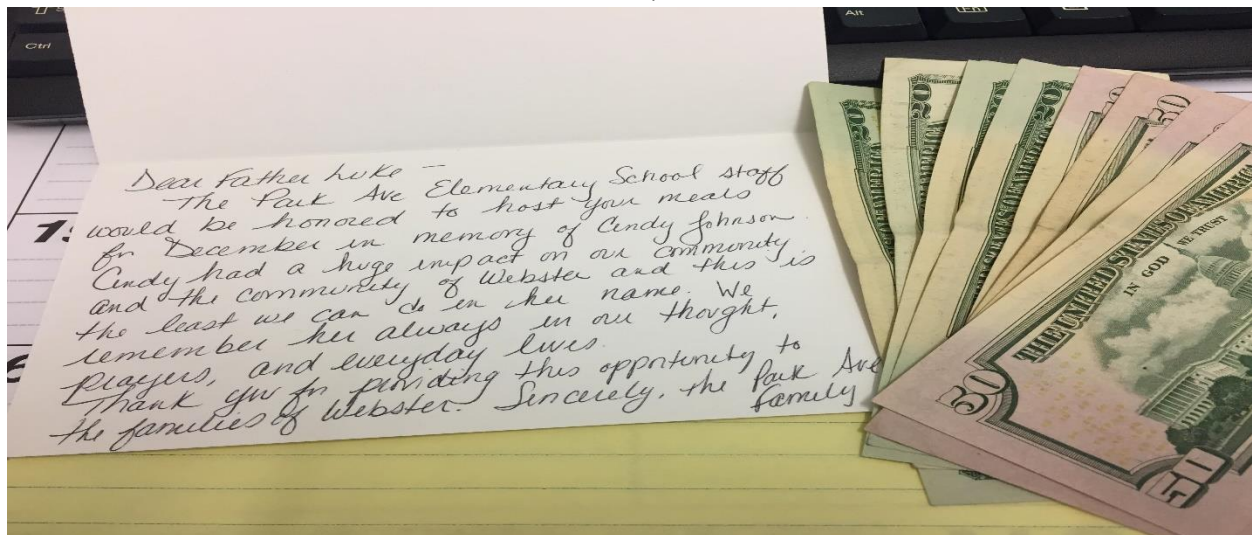 Ctrl
Alt
Dear Father Luke —
The Park Ave Elementary School staff
would be honored to host your meals
for December in memory of Cindy Johnson.
Cindy had a huge impact on our community
and the community of Webster and this is
the least we can do in her name. We
remember her always in our thought,
prayers, and everyday lives.
Thank you for providing this opportunity to
the families of Webster. Sincerely, the Park Ave
family
20
20
20
50
50
THE UNITED STATES OF AMERICA
IN GOD WE TRUST
50
50